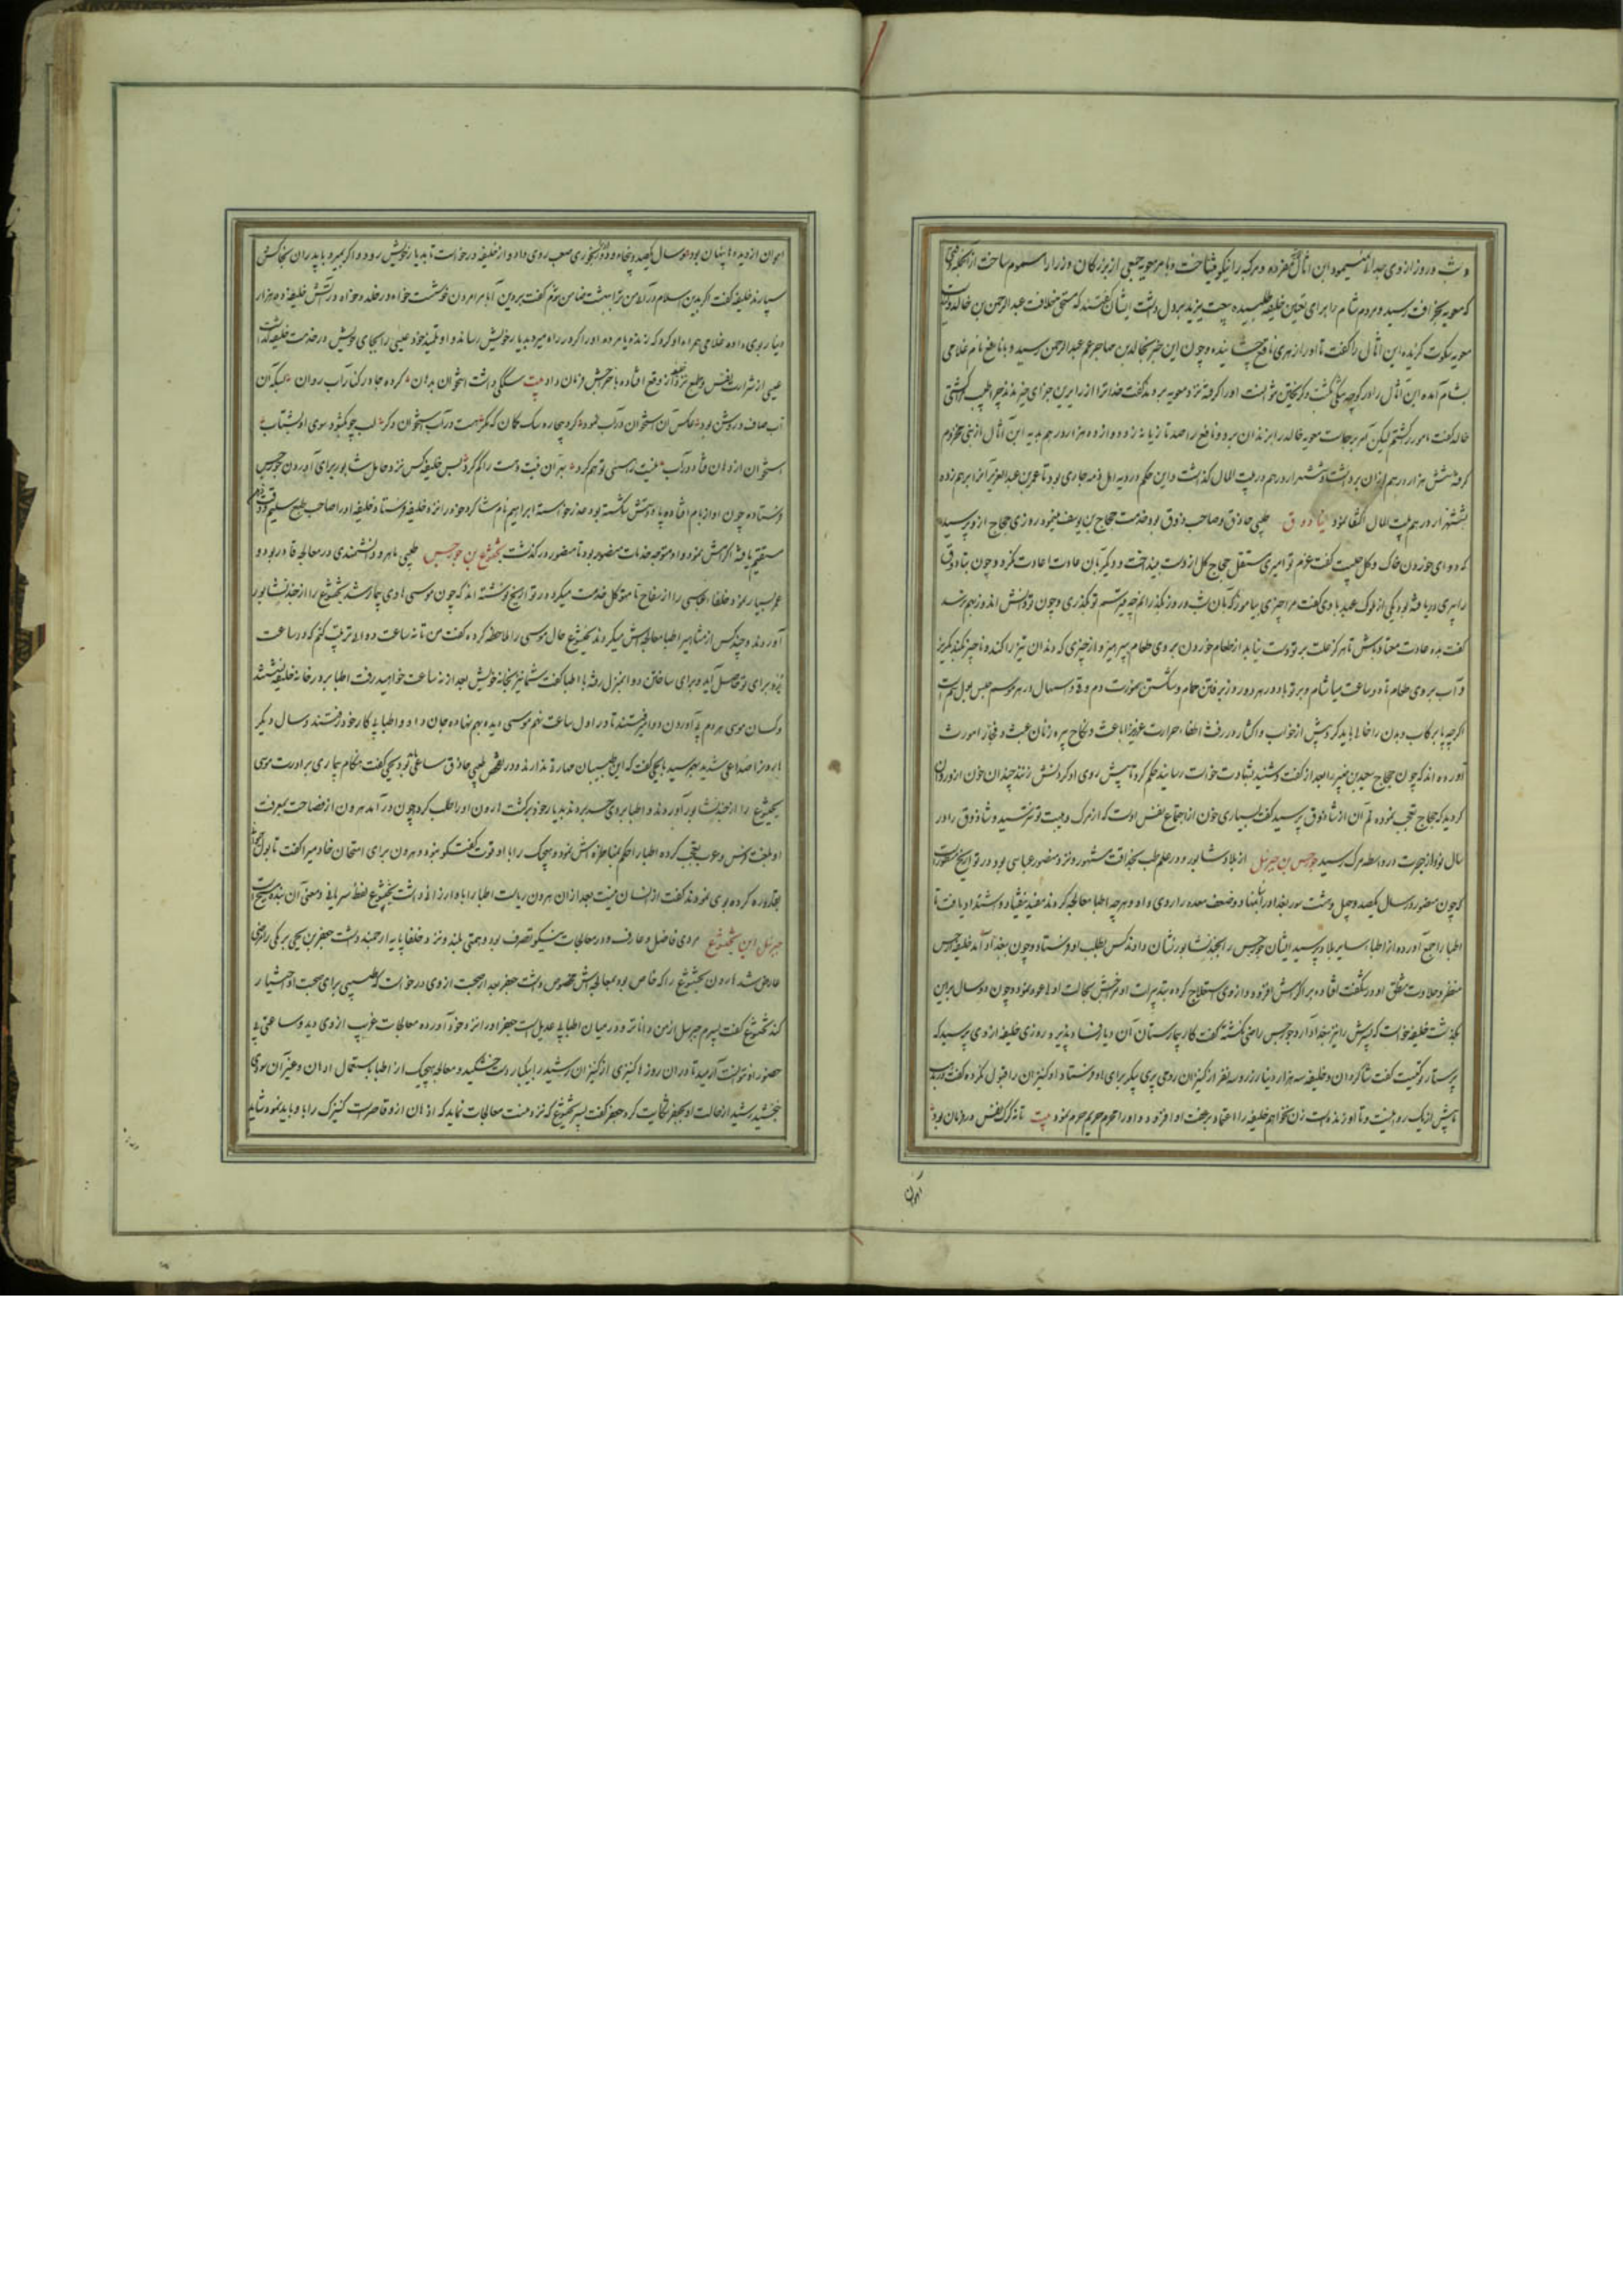 و شب و روز از وی جدا نمیبود و ابن اثال مفرده و مرکبه را نیکو میشناخت و بامر معویه جمعی از بزرکان و زرا را مسموم ساخت از انجمله
که معویه بحرافت رسید و مردم شام را برای تعیین خلیفه طلبیده بیعت یزید بر دل داشت ایشان گفتند که مستحق خلافت عبدالرحمن بن خالد
معویه سکوت کزیده ابن اثال را گفت تا او را زهری ناقع چشانیده و چون این خبر بخالد بن مهاجر عم عبدالرحمن رسید و با نافع نام غلامی
بشام آمده ابن اثال را در کوچه بکشت و کریختن نتوانست او را کرفته نزد معویه بردند گفت خدا ترا از زایرین جزای خیر ندهد چرا طبیب را کشتی
خالد گفت مامور را کشتم لیکن آمر برجاست معویه خالد را بزندان برد و نافع را صد تازیانه زده و دوازده هزار درهم بدیه ابن اثال از بنی مخزوم
کرفته شش هزار درهم ازان برداشت و ششهزار درهم در بیت المال کذاشت و این حکم در دیه اهل ذمه جاری بود تا عمر بن عبدالعزیز انرا برهم زده
بششهزار درهم بیت المال اکتفا نمود تیاذوق طبیبی حاذق و صاحب ذوق بود خدمت حجاج بن یوسف مینمود روزی حجاج ازو پرسید
که دوای خوردن خاک و کل چیست گفت عزم تو امیری مستقل حجاج کل از دست بینداخت و دیکر بان عادت اعادت نکرد و چون تیاذوق
را پیری دریافته بود یکی از ملوک عهد با وی گفت مرا چیزی بیاموز که بان شب و روز بکذرانم چه میترسم تو بکذری و چون تو دانش اندوز بهم نرسد
گفت ده عادت معتاد باش تا هرکز علت بر تو دست نیابد از طعام خوردن بر روی طعام بپرهیز و از چیزی که دندان تیز را کند و ناچیز نکند بکریز
و آب بر روی طعام تا دو ساعت میاشام و بر تو باد در هر دو روز بر رفتن حمام و شکستن صورت دم و قی و اسهال در هر موسم حبس بول هم است
اکرچه بر رکاب و بدن را خالی باید کرد پیش از خواب و اکثار در رفث اطفاء حرارت غریزی را باعث و نکاح پیره زنان عبث و فجاز امورث
آورده اند که چون حجاج سعید بن جبیر را بعد از گفت و شنید بشهادت خواست رسانید حکم کرد تا پیش روی او کردنش زنند چندان خون ازو روان
کردید که حجاج تعجب نموده سر آن از تیاذوق پرسید گفت بسیاری خون از اجتماع نفس اوست که از مرک و هیبت تو نترسید و تیاذوق را در
سال نود از هجرت در واسطه مرک رسید جورجس بن جبرئیل از بلاد شابور و در علم طب بحذاقت مشهور و نزد منصور عباسی بود در تواریخ مسطور
که چون منصور در سال یکصد و چهل و هشت سور بغداد را بنهاد و ضعف معده را روی داد و هر چه اطبا معالجه کردند مفید نیفتاد و شستند او یافت تا
اطبا را جمع آورده از اطباء سایر بلاد پرسید ایشان جورجس را بجندشابور نشان دادند کس بطلب او فرستاد و چون ببغداد آمد خلیفه جورجس
منظر و حلاوت منطق او در شگفت افتاده بر اکرامش افزوده و ازوی استعلاج کرده بتدبیرات او مرخیش بحالت اولی عود نمود و چون دو سال برین
بکذشت خلیفه خواست که پسرش را نیز ببغداد آرد جورجس راضی نکشته گفت کار بیمارستان آن دیار فساد پذیرد و روزی خلیفه ازوی پرسید که
پرستار تو کیست گفت شاکردان و خلیفه سه هزار دینار زر و سه نفر از کنیزان رومی پری پیکر برای او فرستاد و او کنیزان را قبول نکرده گفت در مذهب
ما بیش از یک زن روا نیست و تا او زنده است زن نخواهم خلیفه را اعتماد بر عفت او افزوده و او را محرم حریم حرم نمود بیت تا نه کرک نفس در زمان بود
آهوان
آهوان از دیده ها پنهان بود و در سال یکصد و پنجاه و دو رنجوری صعب روی داد و از خلیفه درخواست تا بدیار خویش رود و اکر بمیرد با پدران بخاکش
سپارند خلیفه گفت اگر بدین اسلام در آئی من ترا بهشت ضامن شوم گفت بر دین آبا مردن خوشست خواه در خلد و خواه در آتش خلیفه ده هزار
دینار بوی داده غلامی همراه او کرد که زنده یا مرده او را اکر در راه میرد بدیار خویش رساند و او تلمیذ خود عیسی را بجای خویش در خدمت خلیفه کذاشت
عیسی از شرارت نفس و طبع نزد خلیفه از وقع افتاده باخراجش فرمان داد بیت سگکی داشت استخوان بدهان کرده جا در کنار آب روان بسکه آن
آب صاف و روشن بود عکس آن استخوان در آب نمود کرد بیچاره سک کمان که مکر هست در آب استخوان دکر لب چو بکشود سوی او بشتاب
استخوان از دهان فتاد در آب نیست را هستی توهم کرد بهر آن نیست هست را گم کرد پس خلیفه کس نزد عامل شابور برای آوردن جورجس
فرستاده چون او از بام افتاده پا و دستش شکسته بود عذر خواسته ابراهیم نام شاکرد خود را نزد خلیفه فرستاد خلیفه او را صاحب طبع سلیم و ذوق
مستقیم یافته اکرامش نمود و او متوجه خدمات منصور بود تا منصور درکذشت بختیشوع بن جورجس طبیبی ماهر و دانشمندی در معالجه قادر بود و
عمر بسیار نمود خلفاء عباسی را از سفاح تا متوکل خدمت میکرد در تواریخ نوشته اند که چون موسی هادی بیمار شد بختیشوع را از جندشابور
آوردند و چند کس از مشاهیر اطبا معالجه اش میکردند بختیشوع حال موسی را ملاحظه کرده گفت من تا نه ساعت دوائی ترتیب کنم که در ساعت
نهم برای تو حاصل آید و برای ساختن دوا بمنزل رفته با اطبا گفت شما نیز بخانه خویش بعد از نه ساعت خواهید رفت اطبا بر در خانه خلیفه نشستند
و کسان موسی هر دم پی آوردن دوا میفرستند تا در اول ساعت نهم موسی دیده بهم نهاده جان داد و اطبا پی کار خود رفتند و سال دیکر
هارونرا صداعی شدید بهمرسید با یحیی گفت که این طبیبان مهارتی ندارند و در تفحص طبیبی حاذق ساعی شو و یحیی گفت هنکام بیماری برادرت موسی
بختیشوع را از جندشابور آوردند و اطبا بروی حسد بردند بدیار خود برکشت هارون او را طلب کرد چون درآمد هرون از فصاحت بمعرفت
او بلغت فرس و عرب تعجب کرده اطبا را حکم بمناظره اش نمود و هیچیک را با او قوت گفتکو نبود و هرون برای امتحان خادمیرا گفت تا بول
بقاروره کرده بوی نمودند گفت از انسان نیست بعد ازان هرون ریاست اطبا را باو ارزانی داشت بختیشوع لفظ سریانی و معنی آن بنده مسیح است
جبرئیل ابن بختیشوع مردی فاضل و عارف و در معالجات نیکو تصرف بود و همتی بلند و نزد خلفا پایه ارجمند داشت جعفر بن یحیی برمکی را مرضی
عارض شد هارون بختیشوع را که خاص بود بمعالجه اش مخصوص داشت جعفر بعد از صحبت ازوی درخواست که طبیبی برای صحبت او اختیار
کند بختیشوع گفت پسرم جبرئیل از من داناتر و در میان اطبا بی عدیل است جعفر او را نزد خود آورده معالجات غریب ازوی دید و ساعتی بی
حضور او نتوانست آرمید تا دران روزها کنیزی از کنیزان رشید را بیکبار دست خشکید و معالجه هیچیک از اطبا باستعمال ادهان و غیر آن سودی
نبخشید رشید از حالت او بجعفر شکایت کرد جعفر گفت پسر بختیشوع که نزد منست معالجات نماید که اذهان ازو قاصر است کنیزک را باو باید نمود شاید